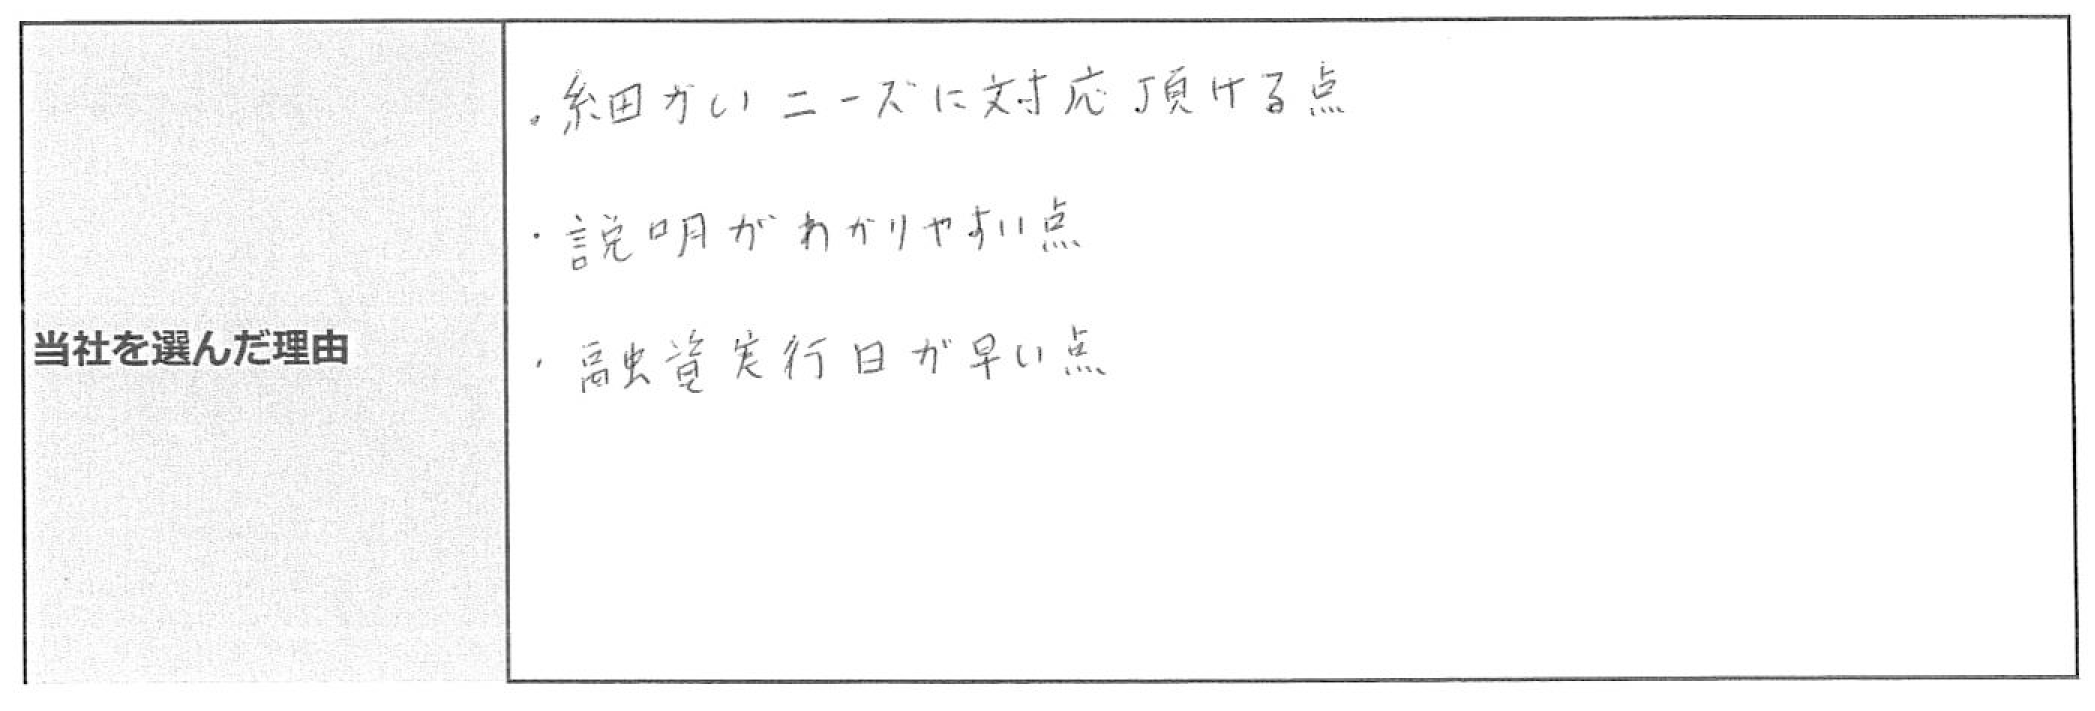 ・細かいニーズに対応頂ける点
・説明がわかりやすい点
当社を選んだ理由
・融資実行日が早い点